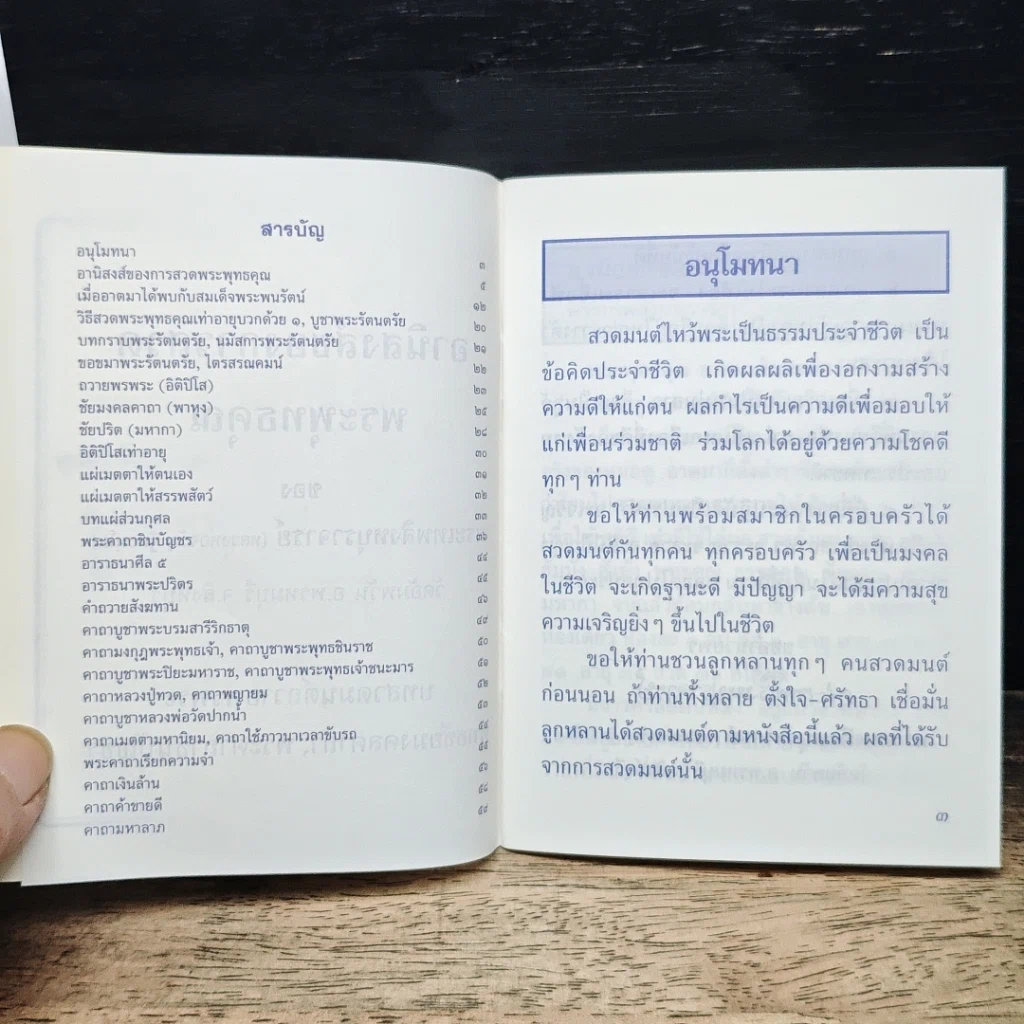 สารบัญ
อนุโมทนา ๓
อานิสงส์ของการสวดพระพุทธคุณ ๕
เมื่ออาตมาได้พบกับสมเด็จพระพนรัตน์ ๑๒
วิธีสวดพระพุทธคุณเท่าอายุบวกด้วย ๑, บูชาพระรัตนตรัย ๒๐
บทกราบพระรัตนตรัย, นมัสการพระรัตนตรัย ๒๑
ขอขมาพระรัตนตรัย, ไตรสรณคมน์ ๒๒
ถวายพรพระ (อิติปิโส) ๒๓
ชัยมงคลคาถา (พาหุง) ๒๕
ชัยปริต (มหากา) ๒๘
อิติปิโสเท่าอายุ ๓๐
แผ่เมตตาให้ตนเอง ๓๑
แผ่เมตตาให้สรรพสัตว์ ๓๒
บทแผ่ส่วนกุศล ๓๓
พระคาถาชินบัญชร ๓๖
อาราธนาศีล ๕ ๔๔
อาราธนาพระปริตร ๔๕
คำถวายสังฆทาน ๔๖
คาถาบูชาพระบรมสารีริกธาตุ ๔๙
คาถามงกุฎพระพุทธเจ้า, คาถาบูชาพระพุทธชินราช ๕๐
คาถาบูชาพระปิยะมหาราช, คาถาบูชาพระพุทธเจ้าชนะมาร ๕๑
คาถาหลวงปู่ทวด, คาถาพญายม ๕๒
คาถาบูชาหลวงพ่อวัดปากน้ำ ๕๓
คาถาเมตตามหานิยม, คาถาใช้ภาวนาเวลาขับรถ ๕๔
พระคาถาเรียกความจำ ๕๕
คาถาเงินล้าน ๕๖
คาถาค้าขายดี ๕๘
คาถามหาลาภ ๕๙
อนุโมทนา
สวดมนต์ไหว้พระเป็นธรรมประจำชีวิต เป็น
ข้อคิดประจำชีวิต เกิดผลผลิเพื่องอกงามสร้าง
ความดีให้แก่ตน ผลกำไรเป็นความดีเพื่อมอบให้
แก่เพื่อนร่วมชาติ ร่วมโลกได้อยู่ด้วยความโชคดี
ทุกๆ ท่าน
ขอให้ท่านพร้อมสมาชิกในครอบครัวได้
สวดมนต์กันทุกคน ทุกครอบครัว เพื่อเป็นมงคล
ในชีวิต จะเกิดฐานะดี มีปัญญา จะได้มีความสุข
ความเจริญยิ่งๆ ขึ้นไปในชีวิต
ขอให้ท่านชวนลูกหลานทุกๆ คนสวดมนต์
ก่อนนอน ถ้าท่านทั้งหลาย ตั้งใจ-ศรัทธา เชื่อมั่น
ลูกหลานได้สวดมนต์ตามหนังสือนี้แล้ว ผลที่ได้รับ
จากการสวดมนต์นั้น
๓